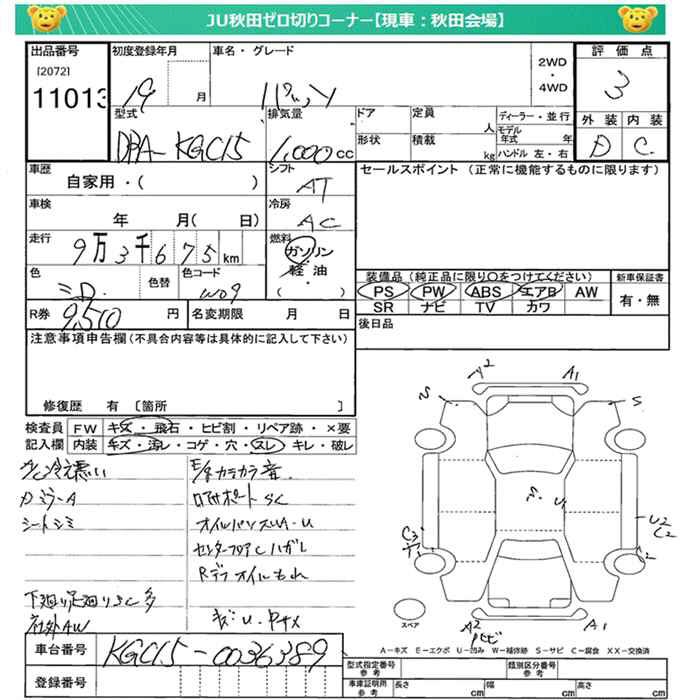 JU秋田ゼロ切りコーナー【現車：秋田会場】
出品番号
[2072]
11013
初度登録年月
19 月
車名・グレード
パッソ
2WD
・
4WD
評価点
3
外装 内装
D C
型式
DBA-KGC15
排気量
1,000cc
ドア
形状
定員 人
積載 kg
ディーラー・並行
モデル年式 年
ハンドル 左・右
車歴
自家用・( )
シフト
AT
セールスポイント (正常に機能するものに限ります)
車検
年 月( 日)
冷房
AC
走行
9万3千675km
燃料
ガソリン
軽油
( )
色
色替
色コード
W09
装備品 (純正品に限り○をつけてください)
PS PW ABS エアB AW
SR ナビ TV カワ
新車保証書
有・無
R券
9,510円
名変期限 月 日
後日品
注意事項申告欄(不具合内容等は具体的に記入して下さい)
修復歴 有 〔箇所 〕
検査員記入欄
FW キズ・飛石・ヒビ割・リペア跡・×要
内装 キズ・汚レ・コゲ・穴・スレ・キレ・破レ
カラカラ音
ミラーA
サポートSC
シートシミ
オイルパンスレA-U
センターフロアCハガレ
Rデフオイルもれ
下廻り足廻りSC多
社外AW
A2
A1
S
S
S
U1
C3
U2
C2
A2
A1
スペア
A-キズ E-エクボ U-凹み W-補修跡 S-サビ C-腐食 XX-交換済
車台番号
KGC15-0036389
登録番号
型式指定番号
参考
類別区分番号
参考
車庫証明用
参考
長さ cm
幅 cm
高さ cm